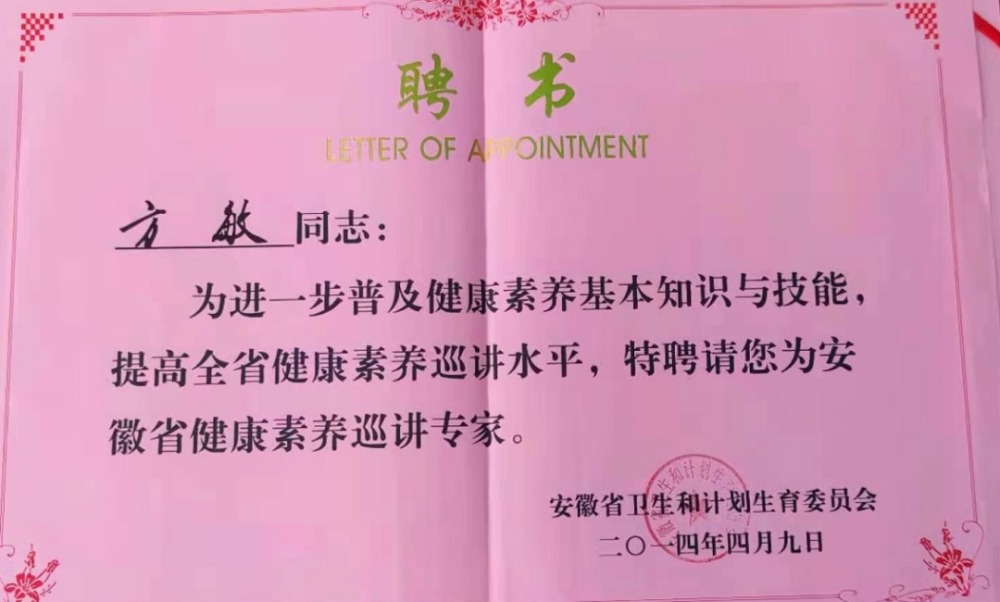 聘书
LETTER OF APPOINTMENT
方敏同志：
为进一步普及健康素养基本知识与技能，
提高全省健康素养巡讲水平，特聘请您为安
徽省健康素养巡讲专家。
安徽省卫生和计划生育委员会
二〇一四年四月九日